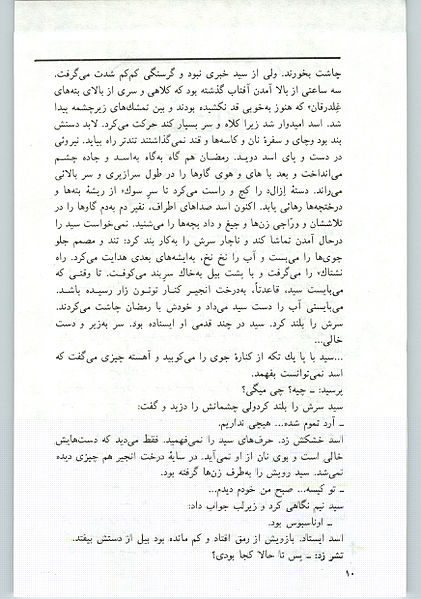 چاشت بخورند. ولی از سید خبری نبود و گرسنگی کم‌کم شدت می‌گرفت.
سه ساعتی از بالا آمدن آفتاب گذشته بود که کلاهی و سری از بالای بته‌های
غلدرقان» که هنوز به‌خوبی قد نکشیده بودند و بین تمشك‌های زیرچشمه پیدا
شد. اسد امیدوار شد زیرا کلاه و سر بسیار کند حرکت می‌کرد. لابد دستش
بند بود وچای و سفرهٔ نان و کاسه‌ها و قند نمی‌گذاشتند تندتر راه بیاید. نیروئی
در دست و پای اسد دوید. رمضان هم گاه به‌گاه به‌اسد و جاده چشم
می‌انداخت و بعد با های و هوی گاوها را در طول سرازیری و سر بالائی
می‌راند. دستهٔ إزال» را کج و راست می‌کرد تا سر سوك» از ریشهٔ بته‌ها و
درختچه‌ها رهائی یابد. اکنون اسد صداهای اطراف، نفیر دم به‌دم گاوها را در
تلاششان و ورّاجی زن‌ها و جیغ و داد بچه‌ها را می‌شنید. نمی‌خواست سید را
درحال آمدن تماشا کند و ناچار سرش را به‌کار بند کرد: تند و مصمم جلو
جوی‌ها را می‌بست و آب را نخ نخ، به‌ایشه‌های بعدی هدایت می‌کرد. راه
نشتاك» را می‌گرفت و با پشت بیل به‌خاك سربند می‌کوفت. تا وقتی که
می‌بایست سید، قاعدتاً، به‌درخت انجیر کنار توتون زار رسیده باشد.
می‌بایستی آب را دست سید می‌داد و خودش با رمضان چاشت می‌کردند.
سرش را بلند کرد. سید در چند قدمی او ایستاده بود. سر به‌زیر و دست
خالی...
...سید با پا یك تکه از کنارهٔ جوی را می‌کوبید و آهسته چیزی می‌گفت که
اسد نمی‌توانست بفهمد.
پرسید: ـ چیه؟ چی میگی؟
سید سرش را بلند کردولی چشمانش را دزدید و گفت:
ـ آرد تموم شده... هیچی نداریم.
اسد خشکش زد. حرف‌های سید را نمی‌فهمید. فقط می‌دید که دست‌هایش
خالی است و بوی نان از او نمی‌آید. در سایهٔ درخت انجیر هم چیزی دیده
نمی‌شد. سید رویش را به‌طرف زن‌ها گرفته بود.
ـ تو کیسه... صبح من خودم دیدم...
سید نیم نگاهی کرد و زیرلب جواب داد:
ـ اوناسبوس بود.
اسد ایستاد. بازویش از رمق افتاد و کم مانده بود بیل از دستش بیفتد.
تشر زد: ـ پس تا حالا کجا بودی؟
۱۰